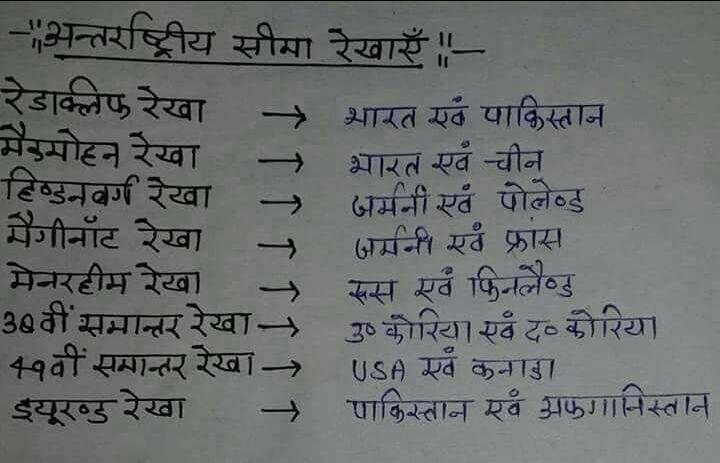 -"अन्तर्राष्ट्रीय सीमा रेखाएँ"-
रेडाक्लिफ रेखा → भारत एवं पाकिस्तान
मैकमोहन रेखा → भारत एवं चीन
हिण्डनवर्ग रेखा → जर्मनी एवं पोलैण्ड
मैगीनॉट रेखा → जर्मनी एवं फ्रांस
मेनरहीम रेखा → रूस एवं फिनलैण्ड
38वीं समान्तर रेखा → उ० कोरिया एवं द० कोरिया
49वीं समान्तर रेखा → USA एवं कनाडा
ड्यूरण्ड रेखा → पाकिस्तान एवं अफगानिस्तान